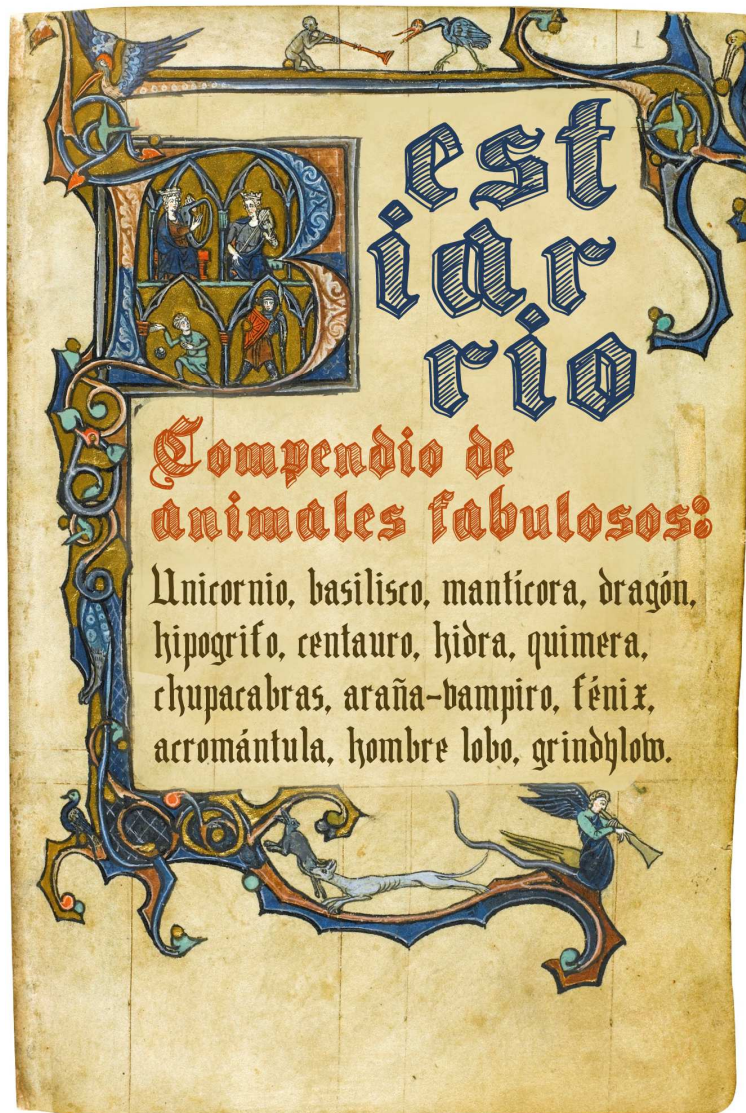 Best
iar
rio
Compendio de
animales fabulosos:
Unicornio, basilisco, mantícora, dragón,
hipogrifo, centauro, hidra, quimera,
chupacabras, araña-vampiro, fénix,
acromántula, hombre lobo, grindylow.